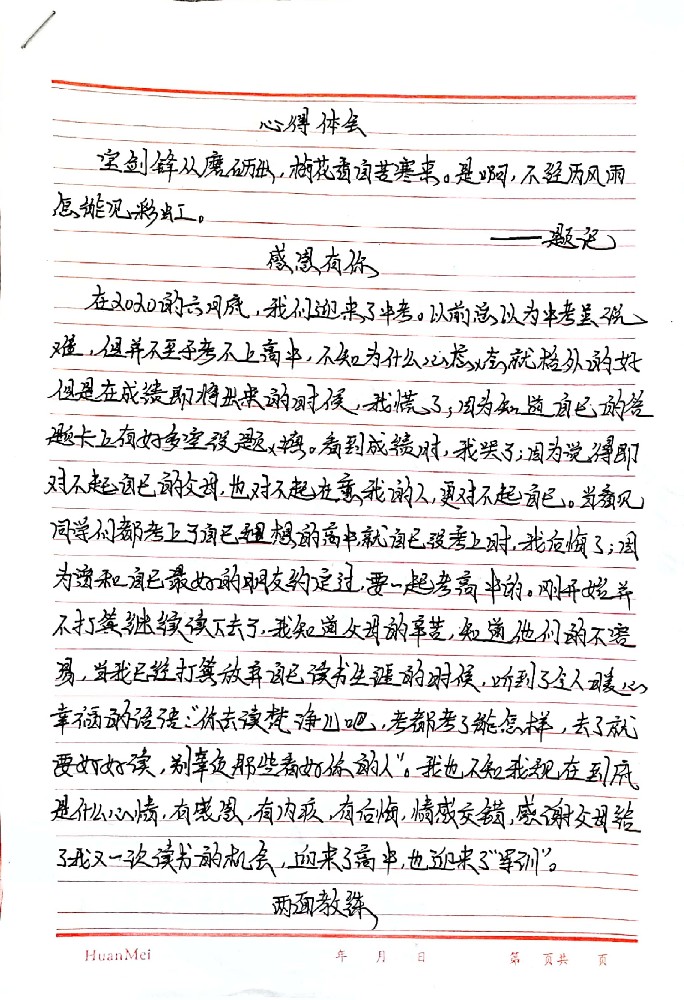 心得体会
宝剑锋从磨砺出，梅花香自苦寒来。是啊，不经历风雨
怎能见彩虹。
——题记
感恩有你
在2020的六月底，我们迎来了中考。以前总以为中考虽说
难，但并不至于考不上高中，不知为什么心态就格外的好
但是在成绩即将出来的时候，我慌了；因为知道自己的答
题卡上有好多空没题填。看到成绩时，我哭了；因为觉得即
对不起自己的父母，也对不起在意我的人，更对不起自己。当看见
同学们都考上了自己理想的高中就自己没考上时，我后悔了；因
为曾和自己最好的朋友约定过，要一起考高中的。刚开始并
不打算继续读下去了，我知道父母的辛苦，知道他们的不容
易，当我已经打算放弃自己读书生涯的时候，听到了令人暖心
幸福的话语：“你去读梵净儿吧，考都考了能怎样，去了就
要好好读，别辜负那些看好你的人”。我也不知我现在到底
是什么心情，有感恩，有内疚，有后悔，情感交错，感谢父母给
了我又一次读书的机会，迎来了高中，也迎来了“军训”。
两面教练
HuanMei 年 月 日 第 页共 页